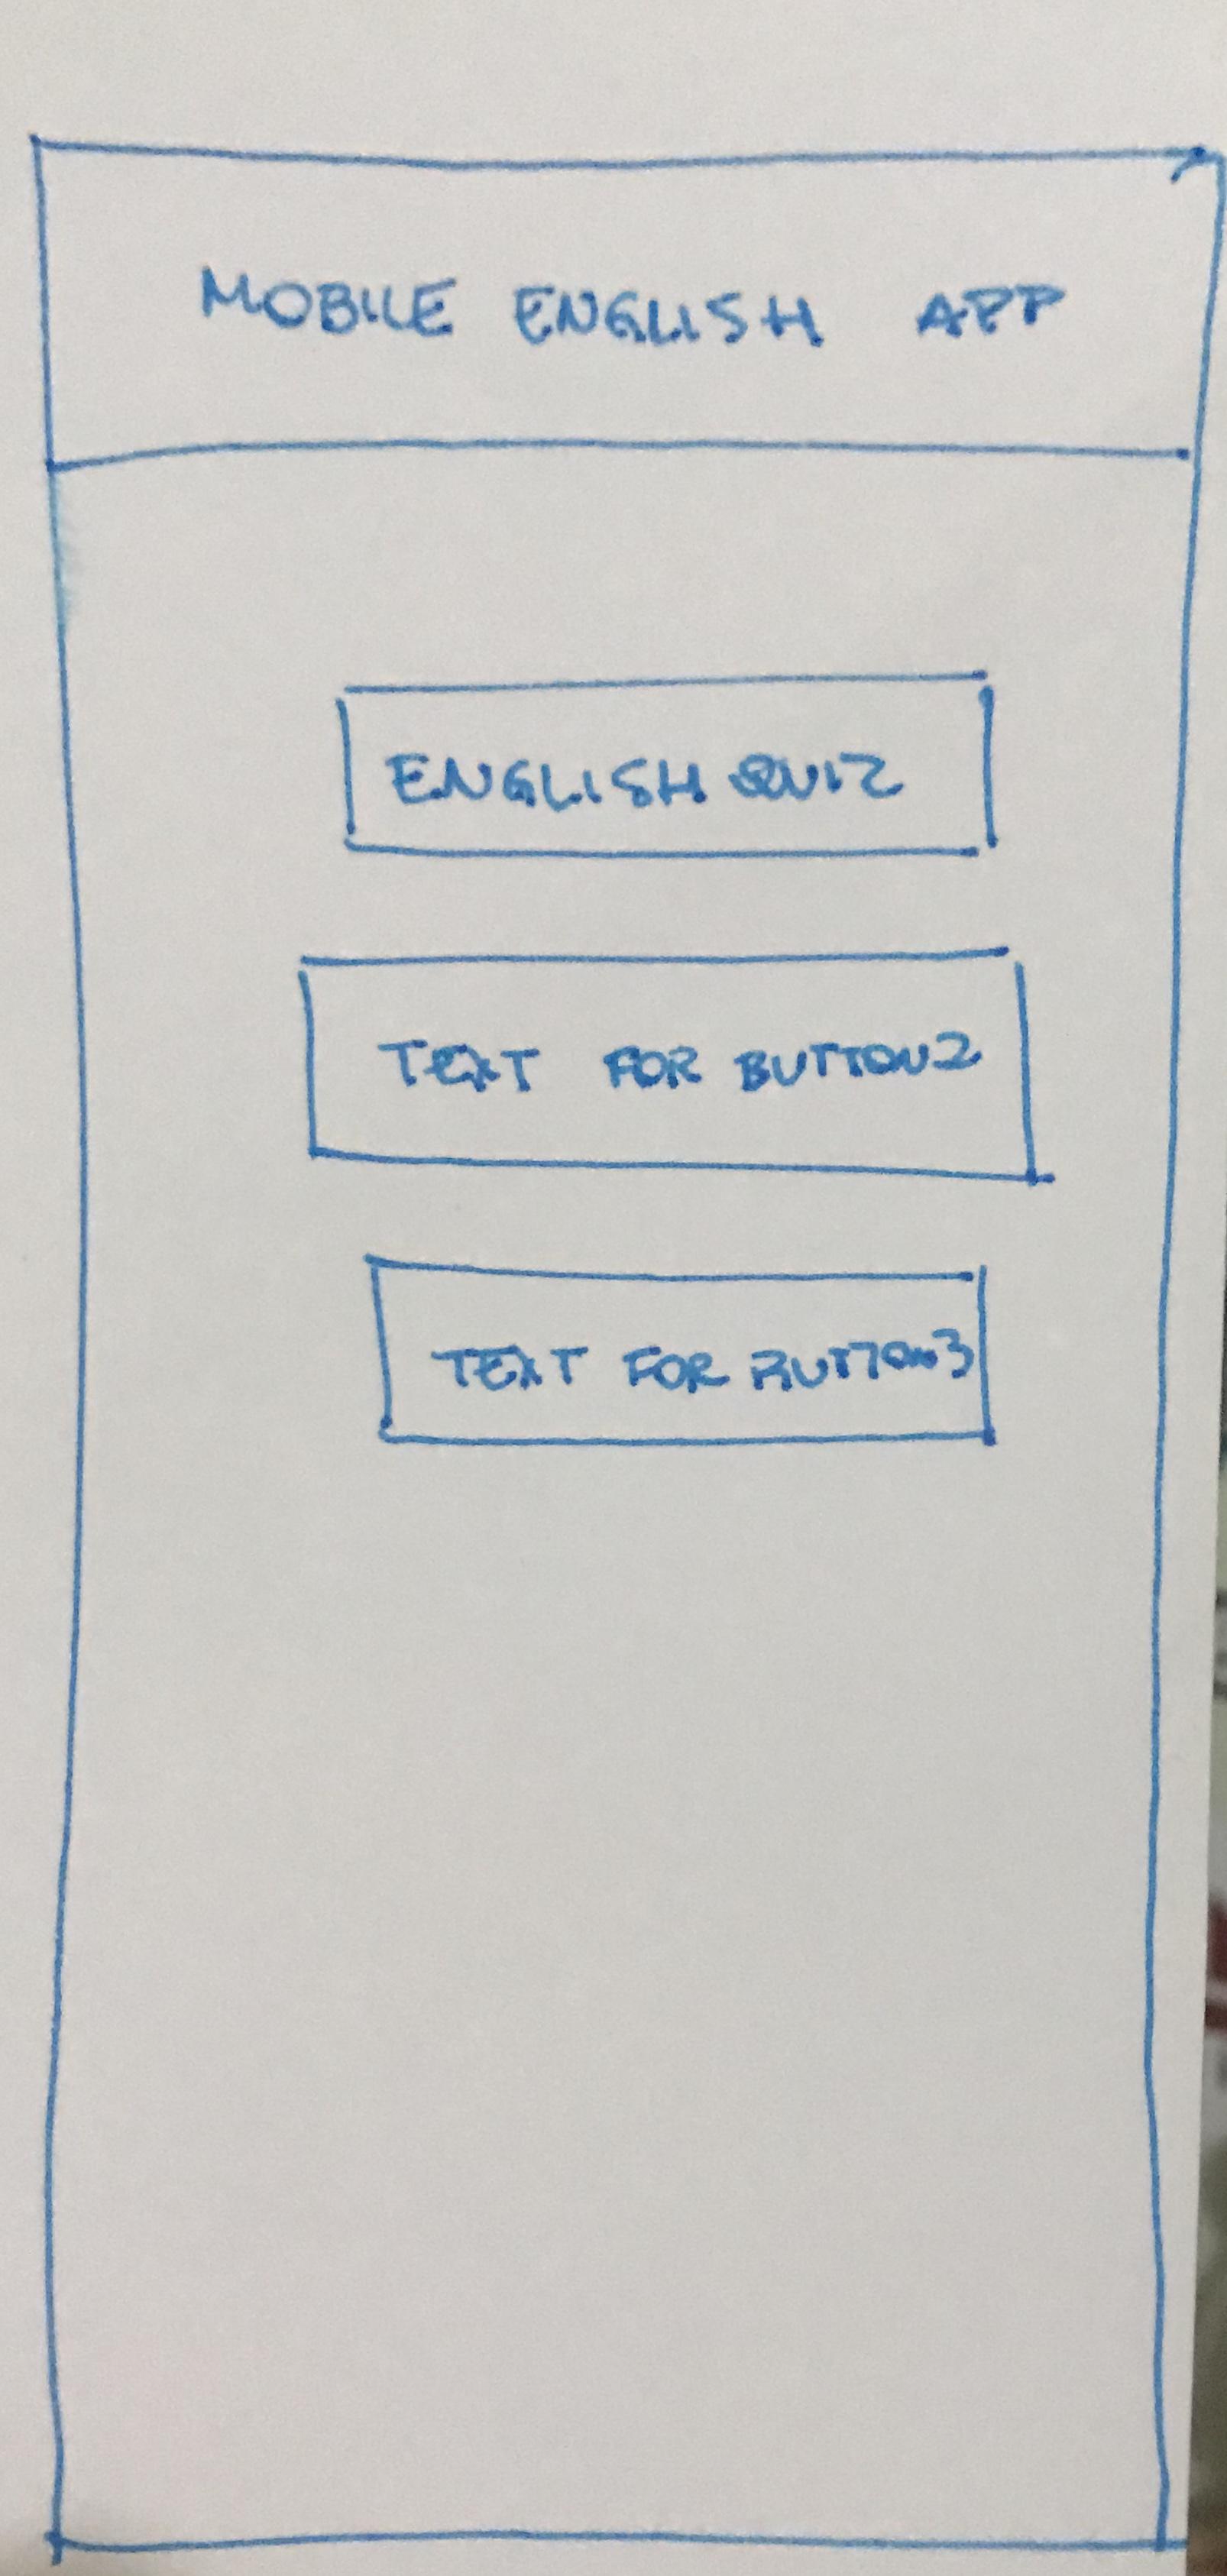 MOBILE ENGLISH APP
ENGLISH QUIZ
TEXT FOR BUTTON2
TEXT FOR BUTTON3